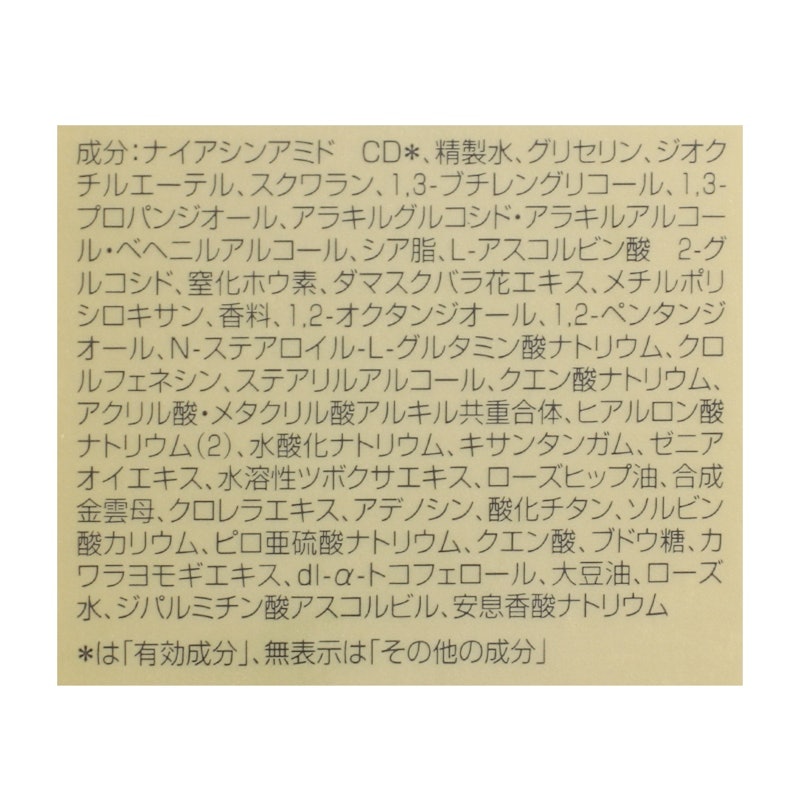 成分:ナイアシンアミド　CD*、精製水、グリセリン、ジオク
チルエーテル、スクワラン、1,3-ブチレングリコール、1,3-
プロパンジオール、アラキルグルコシド・アラキルアルコー
ル・ベヘニルアルコール、シア脂、L-アスコルビン酸　2-グ
ルコシド、窒化ホウ素、ダマスクバラ花エキス、メチルポリ
シロキサン、香料、1,2-オクタンジオール、1,2-ペンタンジ
オール、N-ステアロイル-L-グルタミン酸ナトリウム、クロ
ルフェネシン、ステアリルアルコール、クエン酸ナトリウム、
アクリル酸・メタクリル酸アルキル共重合体、ヒアルロン酸
ナトリウム(2)、水酸化ナトリウム、キサンタンガム、ゼニア
オイエキス、水溶性ツボクサエキス、ローズヒップ油、合成
金雲母、クロレラエキス、アデノシン、酸化チタン、ソルビン
酸カリウム、ピロ亜硫酸ナトリウム、クエン酸、ブドウ糖、カ
ワラヨモギエキス、dl-α-トコフェロール、大豆油、ローズ
水、ジパルミチン酸アスコルビル、安息香酸ナトリウム
*は「有効成分」、無表示は「その他の成分」